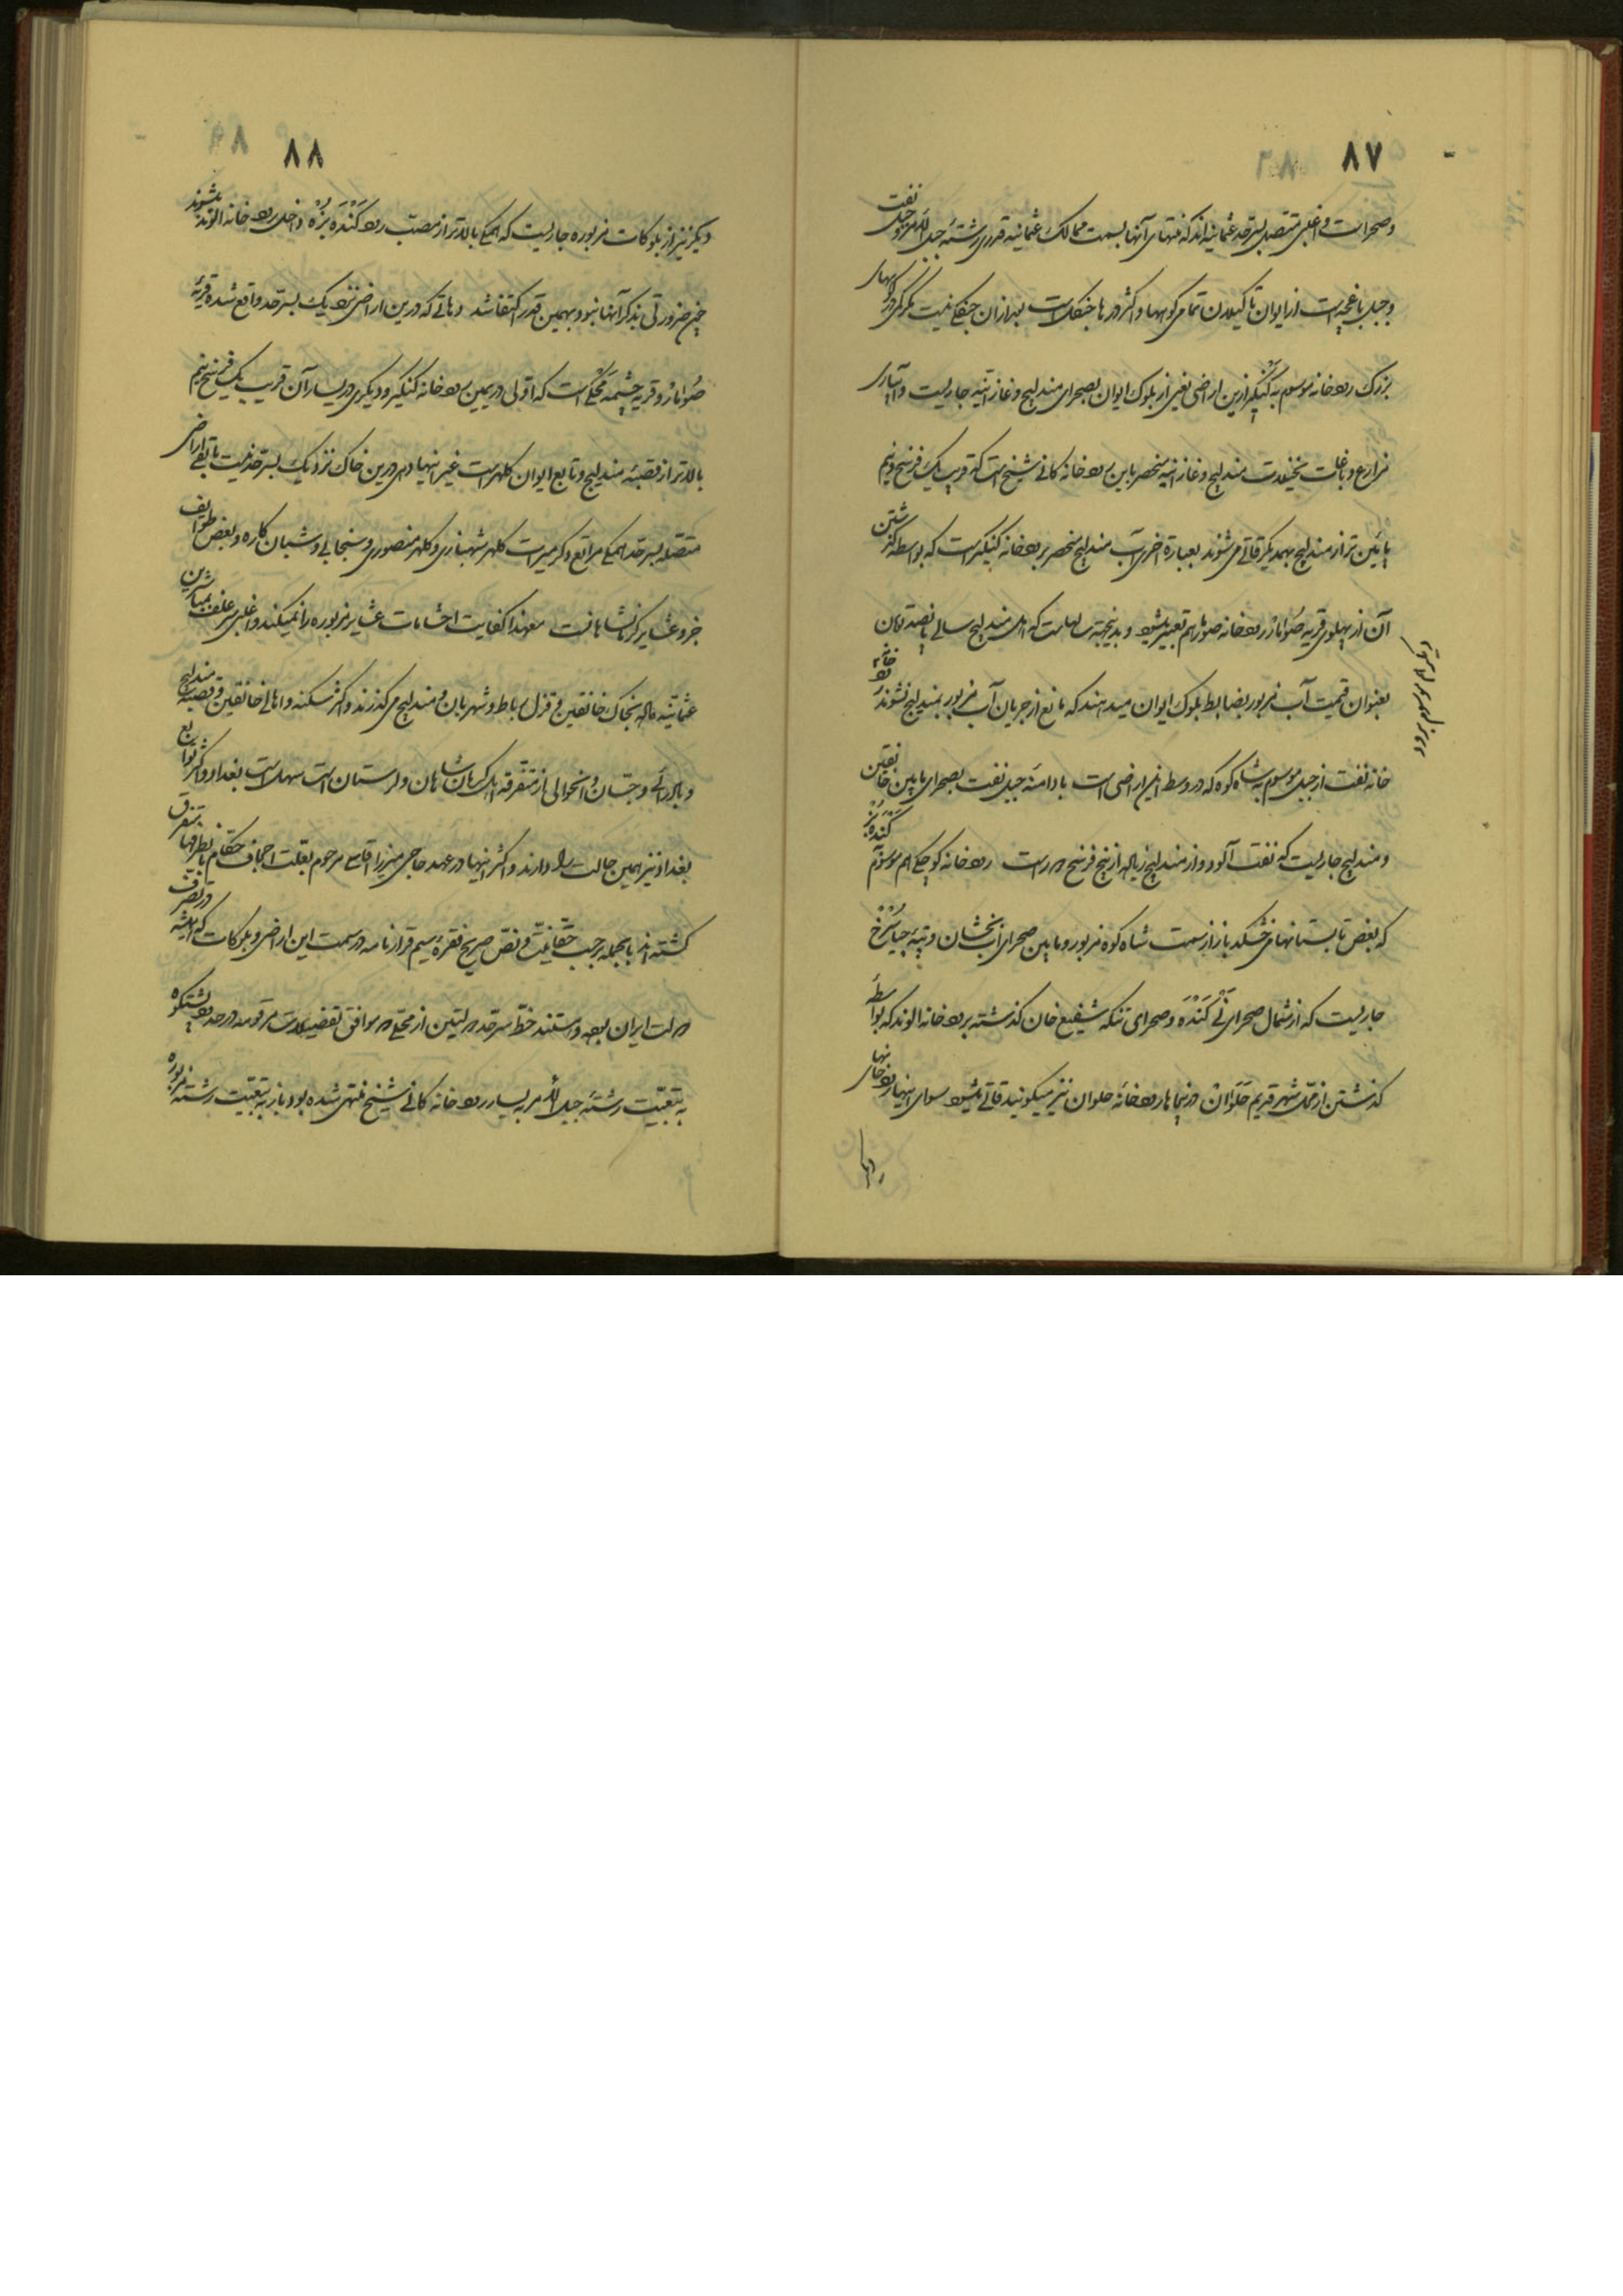 ۸۷
و صحراست و اغلبی متصل بسرحد عثمانیه اند که منتهای آنها بسمت ممالک عثمانیه قدری رشته جبل و جبل نفت
و جبل باغچه است از ایوان تا گیلان تمامی کوهها و اکثر دره ها جنگل است بعد از آن جنگلی نیست مگر کمی در کوههای
بزرک رودخانه موسوم به کنکیر ازین اراضی یعنی از بلوک ایوان بصحرای مندلیج و غازانیه جاریست و آبیاری
مزارع و باغات نخیلات مندلیج و غازانیه منحصر باین رودخانه کانی شیخ است که قریب یک فرسخ و نیم
پایین تر از مندلیج بهمدیکر تلاقی می شوند بعبارة اخری آب مندلیج منحصر برودخانه کنکیر است که بواسطه گذشتن
آن از پهلوی قریه صومار رودخانه صومار هم تعبیر میشود و بدینجهة سالهاست که اهل مندلیج سالی پانصد تومان
بعنوان قیمت آب مزبور بضابط بلوک ایوان میدهند که مانع از جریان آب مزبور بمندلیج نشوند رودخانه
خانه نفت از جبل موسوم به شاه کوه که در وسط این اراضی است با دامنه جبل نفت بصحرای مابین خانقین
و مندلیج جاریست که نفت آلود و از مندلیج زیاده از پنج فرسخ دور است رودخانه کوچکی هم موسوم کنده بزه
که بعض تابستانها می خشکد باز از سمت شاه کوه مزبور و مابین صحرای آب بخشان و تپه جیاسرخ
جاریست که از شمال صحرای نی کنده و صحرای تنکه شفیع خان کذشته برودخانه الوند که بواسطه
کذشتن از محل شهر قدیم حلوان درینجاها رودخانه حلوان نیز میکویند تلاقی میشود سوای اینها رودخانهای
دیکر
۸۸
دیکر نیز از بلوکات مزبوره جاریست که همکی بالاتر از مصب رود کنده بزه داخل رودخانه الوند میشوند
چون ضرورتی بذکر آنها نبود بهمین قدر اکتفا شد دهاتی که درین اراضی نزدیک بسرحد واقع شده قریه
صومار و قریه چشمه است که اولی در یمین رودخانه کنکیر و دیکری در یسار آن قریب یک فرسخ و نیم
بالاتر از قصبه مندلیج و تابع ایوان کلهر است غیر اینها دهی درین خاک نزدیک بسرحد نیست باقی اراضی
متصله بسرحد همکی مراتع و کرمسیرات کلهر شهبازی و کلهر منصوری و سنجابی و شبان کاره و بعض طوایف
جزو عشایر کرمانشاهانست معهذا کفایت احشامات عشایر مزبوره را نمیکند و اغلبی
عثمانیه داده بخاک خانقین و قزل رباط و شهربان و مندلیج می گذرند و اکثر سکنه و اهالی خانقین و قصبه مندلیج
و بادرائی و جسان و انحوالی از متفرقه اهل کرمانشاهان و لرستان است سهل است بغداد و اکثر توابع
بغداد نیز همین حالت را دارند و اکثر اینها در عهد حاجی میرزا آقاسی مرحوم بعلت اجحاف حکام بانطرفها متفرق
کشته اند بالجمله بموجب حقانیت و نص صریح فقره سیم قرارنامه در سمت این اراضی و بلوکات که همیشه در تصرف
دولت ایران بوده و هستند خط سرحد دولتین از محلی که موافق تفصیلات مرقومه در حدود پشتکوه
به تبعیت رشته جبل به یسار رودخانه کانی شیخ منتهی شده بود باز به تبعیت رشته مزبوره